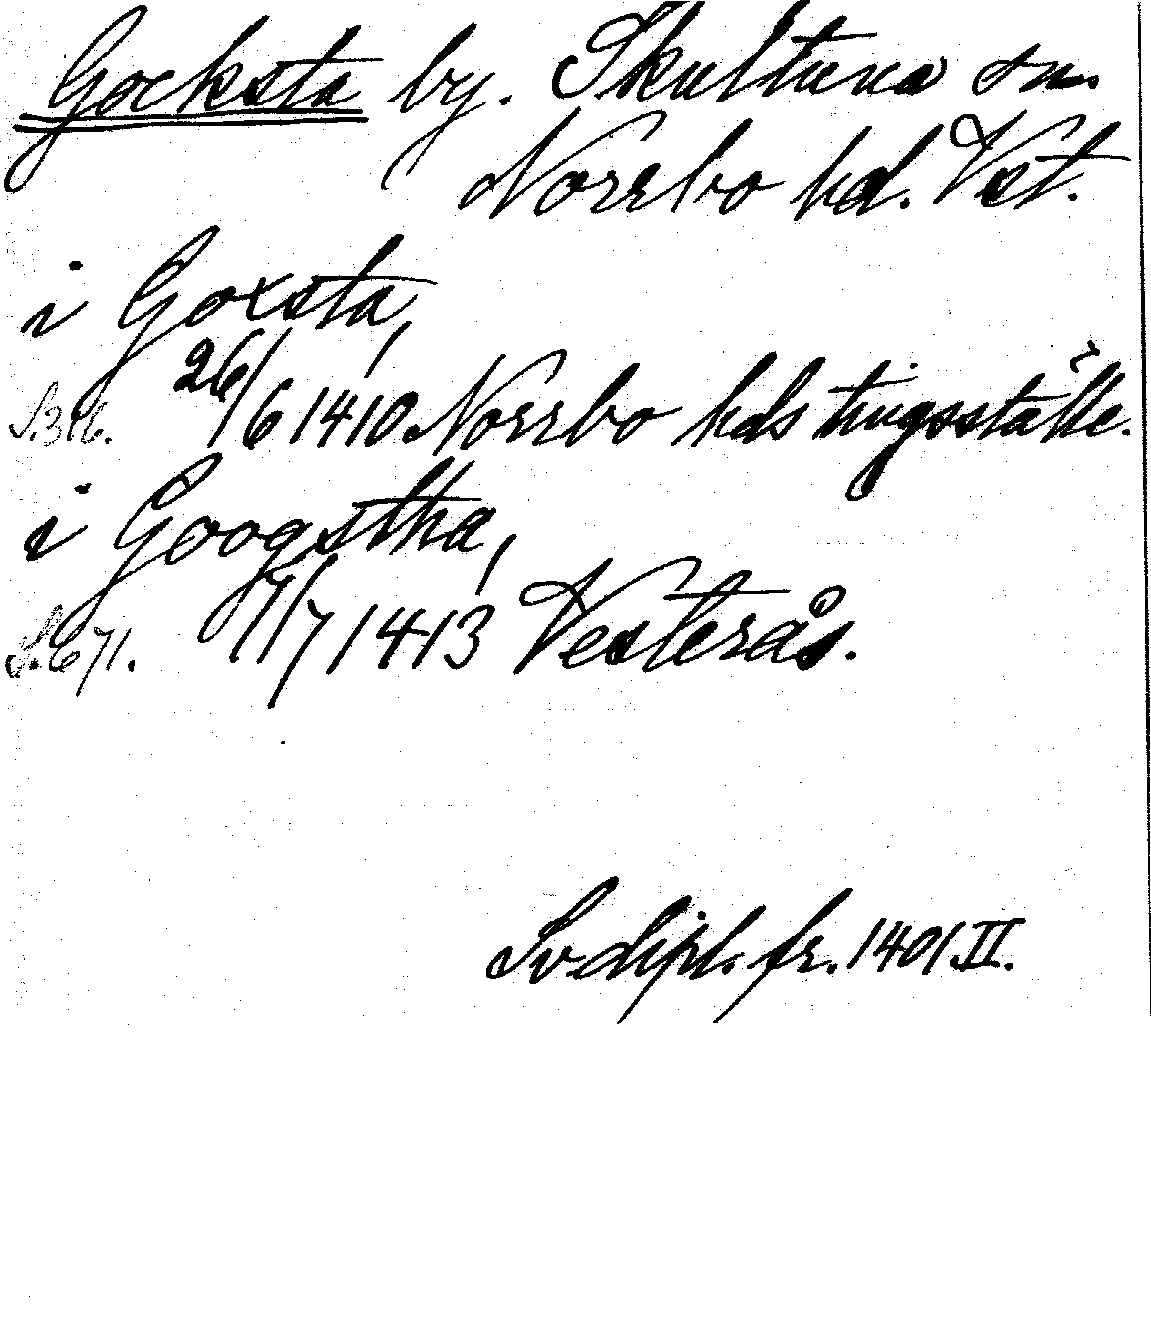 Gocksta by. Skultuna sn.
Norrbo hd. Vst.
i Goxsta,
S.316. 26/6 1410. Norrbo hds tingsställe.
i Googstha,
S.671. 7/7 1413 Vesterås.
Sv. dipl. fr. 1401. II.